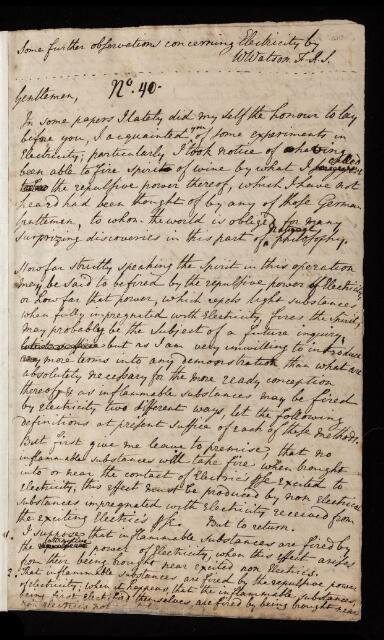 Some further observations concerning Electricity by
W Watson F.R.S.
No. 40.
Gentlemen,
In some papers I lately did my self the honour to lay
before you, I acquainted you of some experiments in
Electricity; particularly I took notice of having
been able to fire Spirit of wine by what I called
the repulsive power thereof, which I have not
heard had been thought of by any of those German
Gentlemen, to whom the world is obliged for many
surprizing discoveries in this part of natural philosophy.
How far strictly speaking the Spirit in this operation
may be said to be fired by the repulsive power of Electricity
or how far that power, which repels light substances
when fully impregnated with Electricity, fires the Spirit,
may probably be the subject of a future inquiry.
but as I am very unwilling to introduce
more terms into any demonstration than what are
absolutely necessary for the more ready conception
thereof & as inflammable substances may be fired
by Electricity two different ways, let the following
definitions at present suffice of each of these methods.
But first give me leave to premise, that no
inflammable substances will take fire when brought
into or near the contact of Electrics per se excited to
Electricity, this effect must be produced by non Electrical
substances impregnated with Electricity received from
the exciting Electrics per se. But to return.
1. I suppose that inflammable substances are fired by
the attractive power of Electricity, when this effect arises
from their being brought near excited non Electrics.
2. That inflammable substances are fired by the repulsive power
of electricity, when it happens that the inflammable substances,
being first electrified themselves, are fired by being brought near
non electrics not